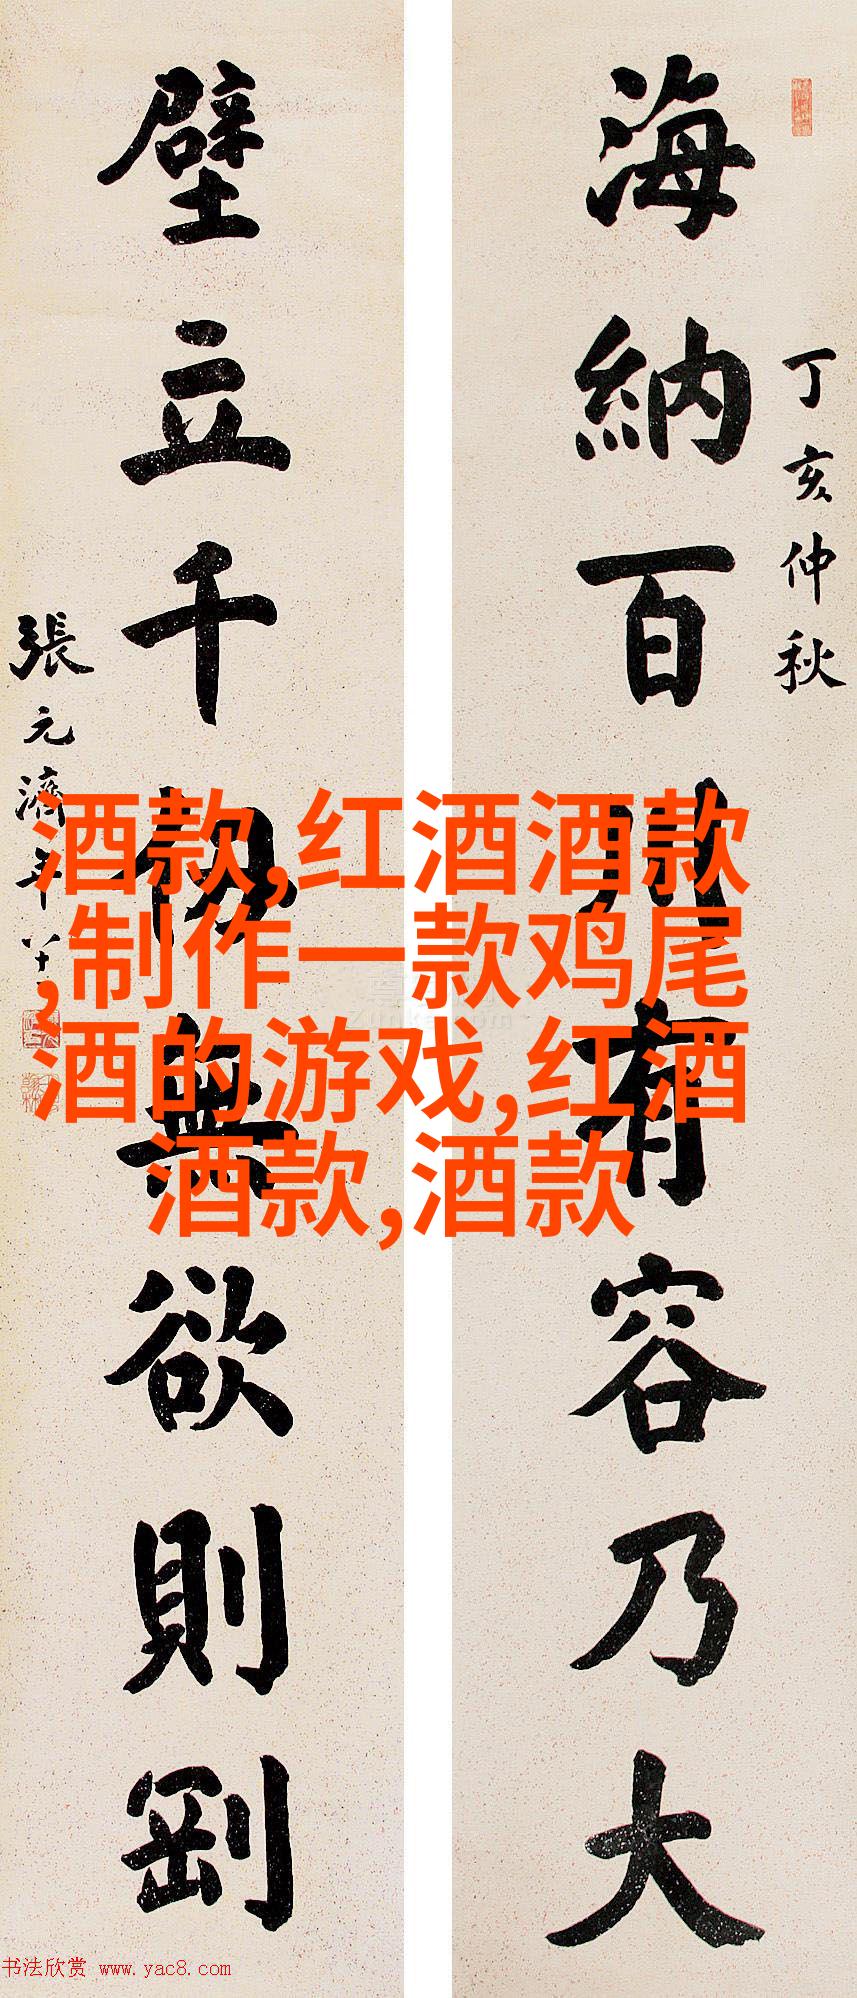 海納百川有容乃大
丁亥仲秋
壁立千仞無欲則剛
張元濟年八十一
酒款,红酒酒款
,制作一款鸡尾
酒的游戏,红酒
酒款,酒款
书法欣赏 www.yac8.com